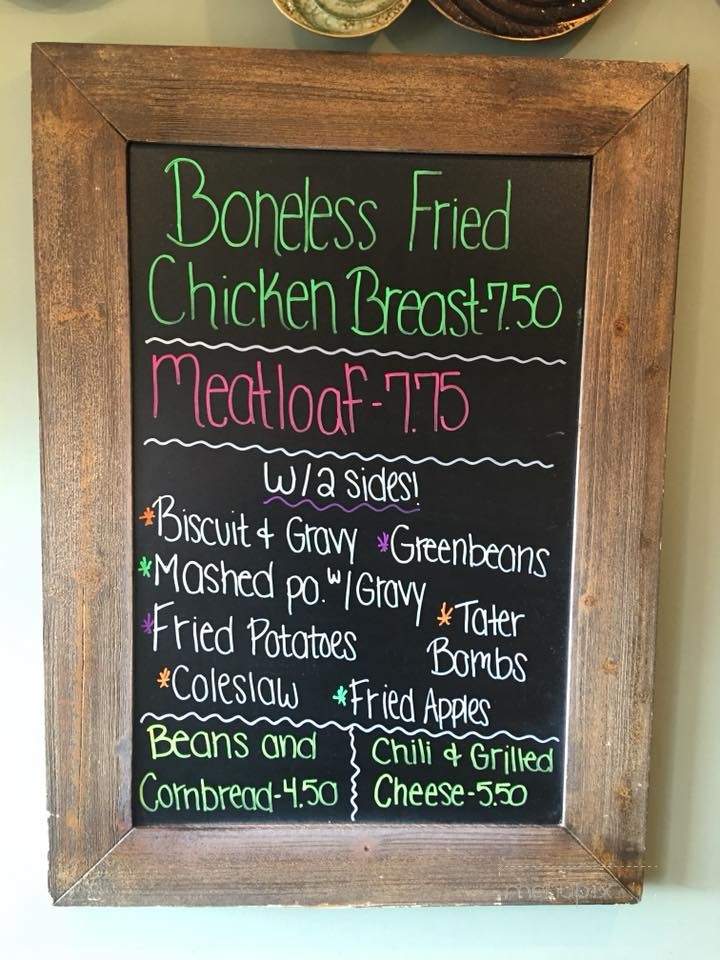 Boneless Fried
Chicken Breast-7.50
Meatloaf-7.75
W/2 sides!
*Biscuit & Gravy *Greenbeans
*Mashed po. w/Gravy
*Tater
Bombs
*Fried Potatoes
*Coleslaw *Fried Apples
Beans and
Cornbread-4.50
Chili & Grilled
Cheese-5.50
menupix